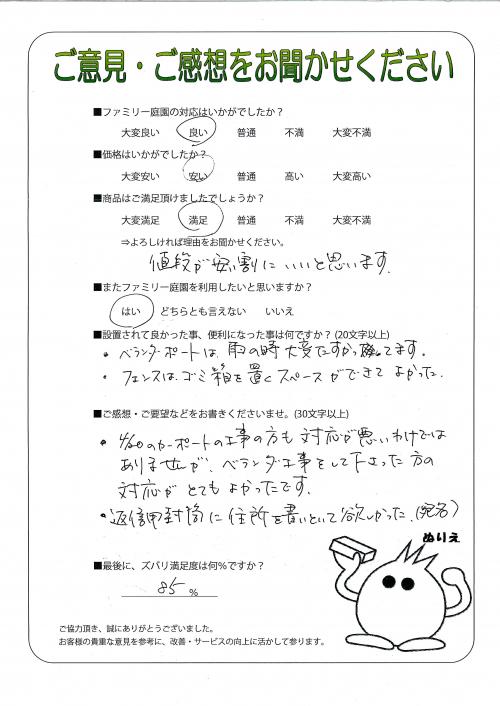 ご意見・ご感想をお聞かせください
■ファミリー庭園の対応はいかがでしたか？
大変良い 良い 普通 不満 大変不満
■価格はいかがでしたか？
大変安い 安い 普通 高い 大変高い
■商品はご満足頂けましたでしょうか？
大変満足 満足 普通 不満 大変不満
⇒よろしければ理由をお聞かせください。
値段が安い割にいいと思います。
■またファミリー庭園を利用したいと思いますか？
はい どちらとも言えない いいえ
■設置されて良かった事、便利になった事は何ですか？(20文字以上)
・ベランダポートは、雨の時大変たすかってます。
・フェンスは、ゴミ箱を置くスペースができてよかった。
■ご感想・ご要望などをお書きくださいませ。(30文字以上)
・4/20のカーポートの工事の方も対応が悪いわけでは
ありませんが、ベランダ工事をして下さった方の
対応がとてもよかったです。
・返信用封筒に住所を書いといて欲しかった。(宛名)
ぬりえ
■最後に、ズバリ満足度は何％ですか？
85 %
ご協力頂き、誠にありがとうございました。
お客様の貴重な意見を参考に、改善・サービスの向上に活かして参ります。